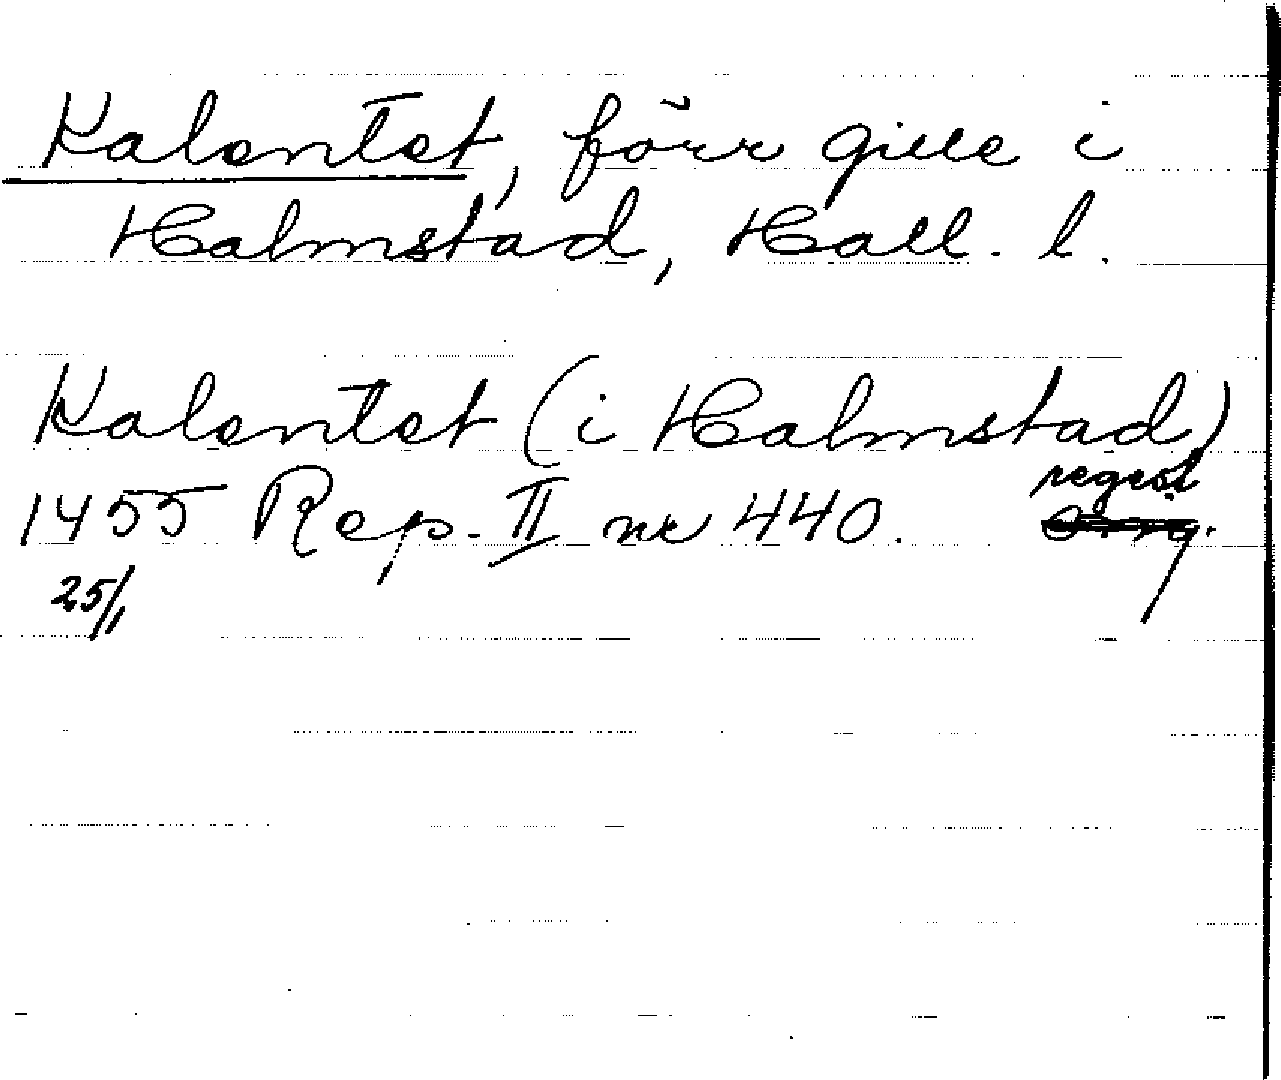 Kalentet, förr gille i
Halmstad, Hall. l.
Kalentet (i Halmstad)
1455 Rep. II nr 440. regest
25/1